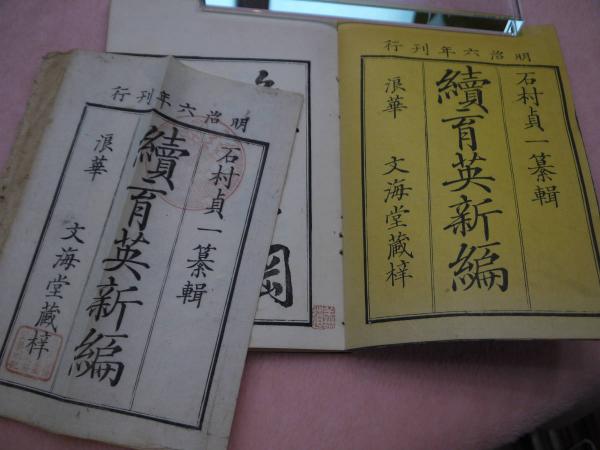 明治六年刊行
石村貞一纂輯
續育英新編
浪華 文海堂藏梓
明治六年刊行
石村貞一纂輯
續育英新編
浪華 文海堂藏梓